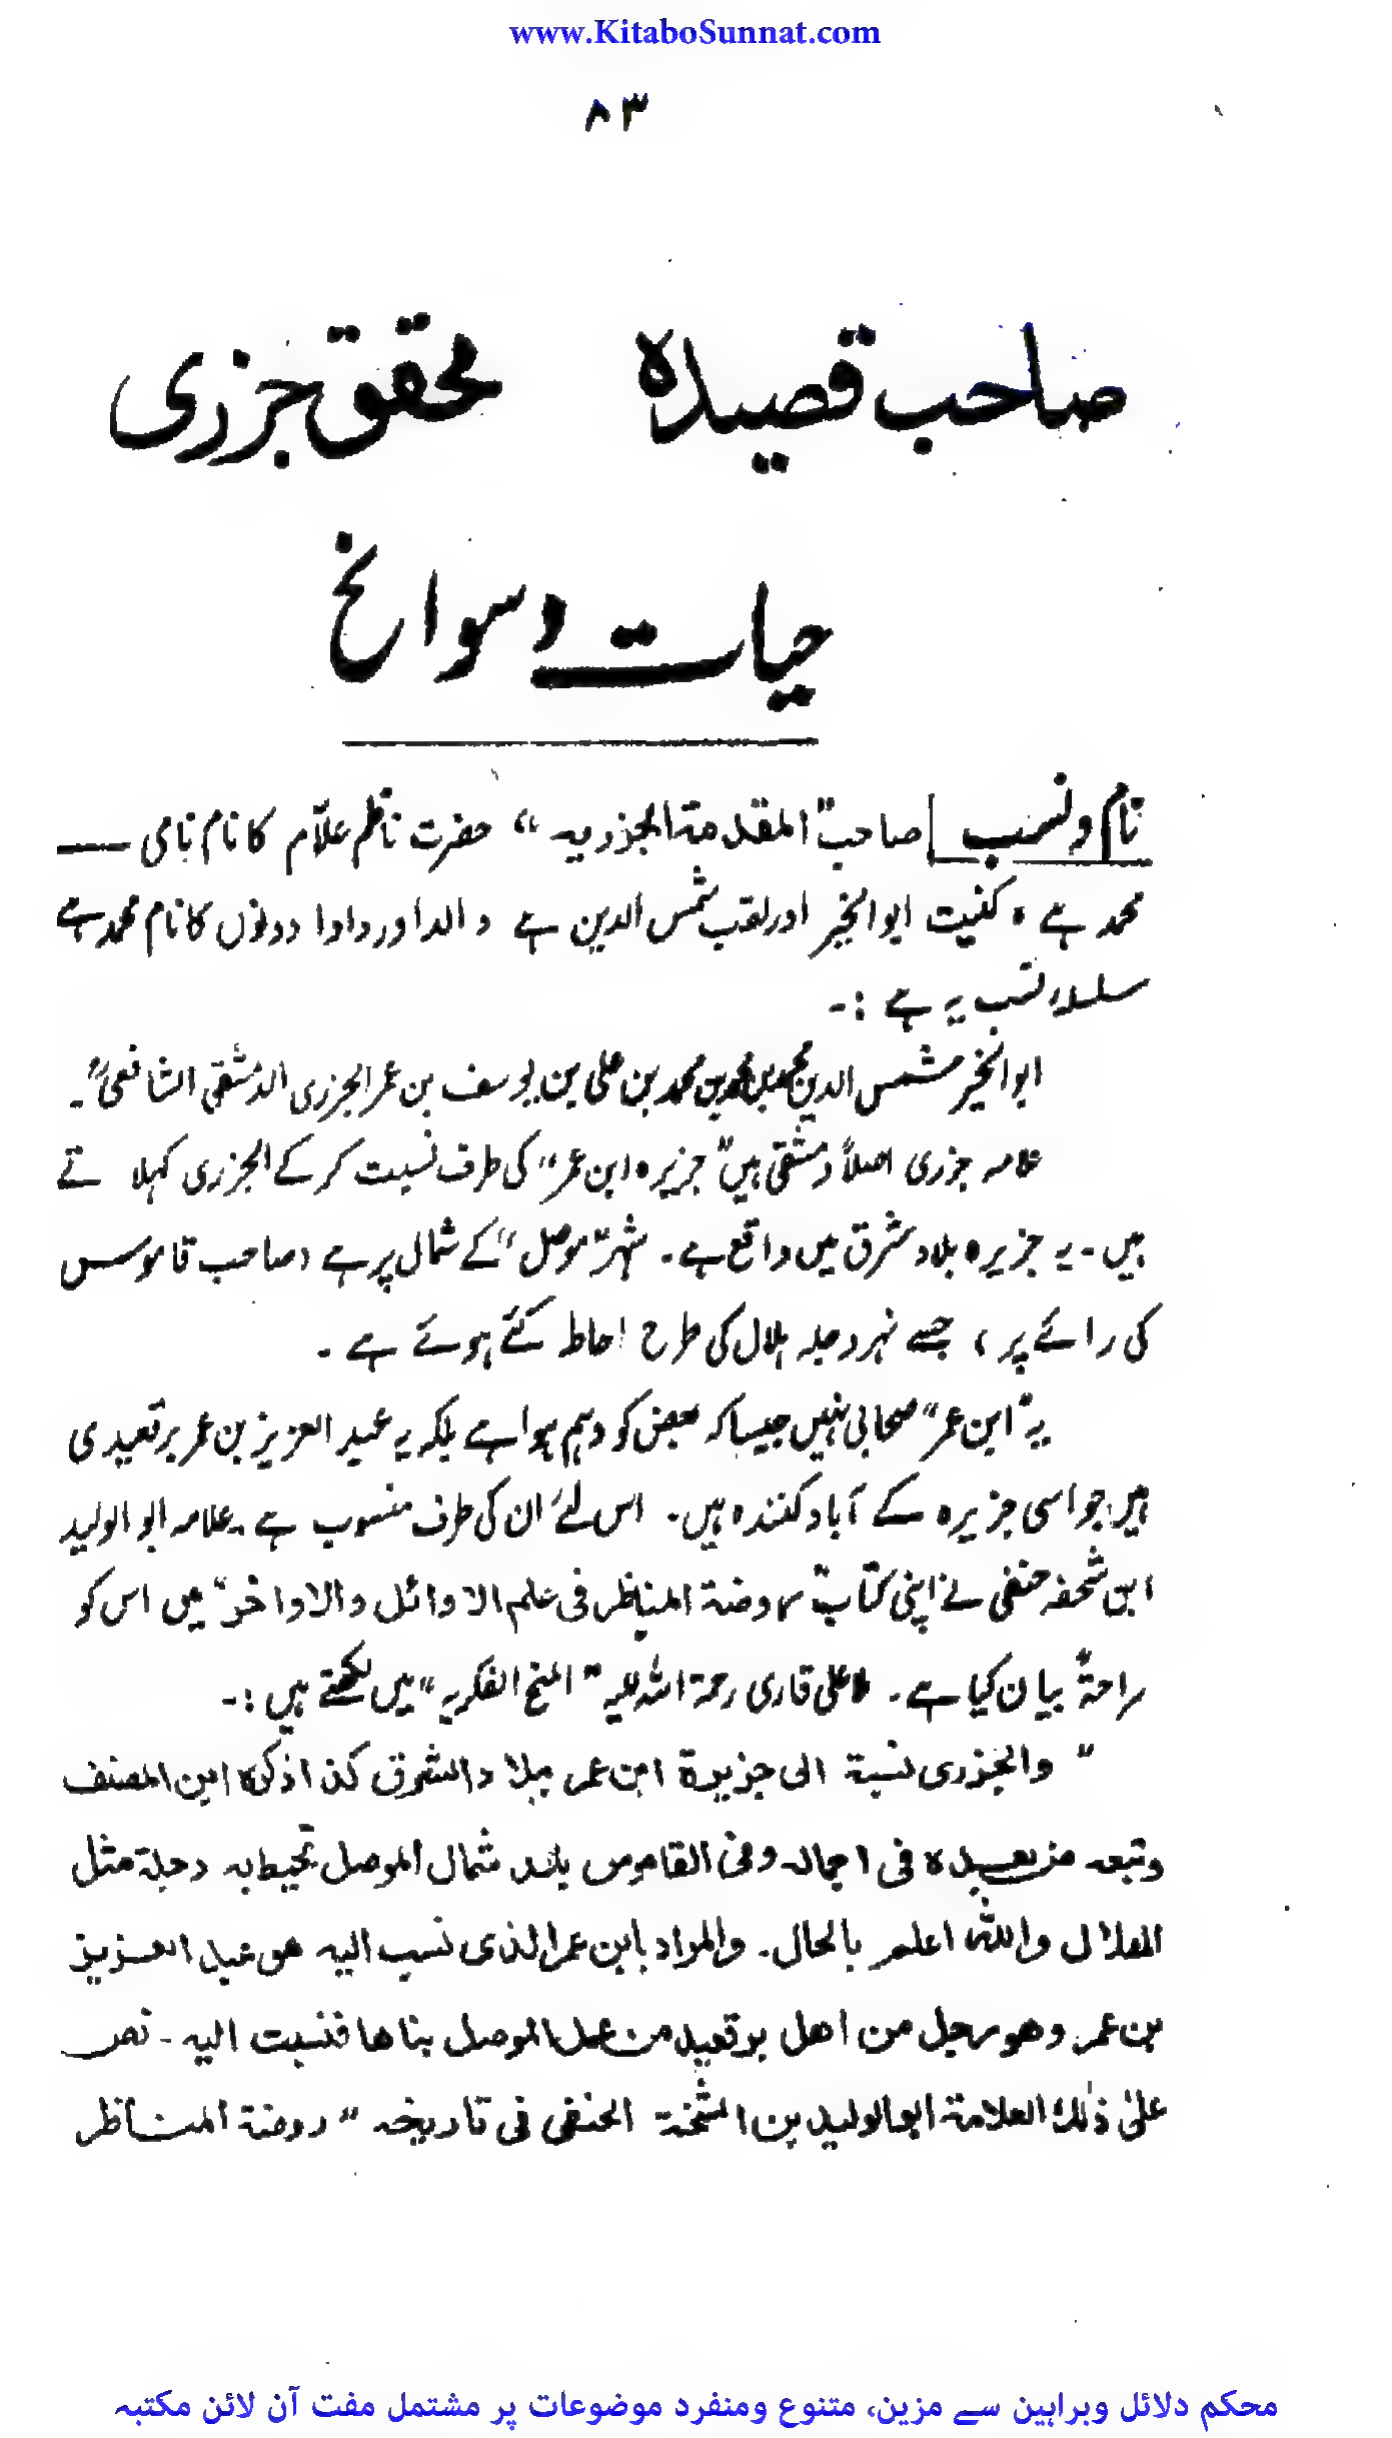 www.KitaboSunnat.com
۸۳
صاحب قصیدہ محقق جزری
حیات و سوانح
نام و نسب صاحب "المقدمۃ الجزریہ" حضرت ناظم علاّم کا نام نامی ——
محمد ہے، کنیت ابوالخیر اور لقب شمس الدین ہے والد اور دادا دونوں کا نام محمد ہے
سلسلہ نسب یہ ہے :-
ابوالخیر شمس الدین محمد بن محمد بن محمد بن علی بن یوسف بن عمر الجزری الدمشقی الشافعیؒ"۔
علامہ جزری اصلاً دمشقی ہیں "جزیرہ ابن عمر" کی طرف نسبت کر کے الجزری کہلاتے
ہیں۔ یہ جزیرہ بلاد شرق میں واقع ہے۔ شہر "موصل" کے شمال پر ہے (صاحب قاموس
کی رائے پر)، جسے نہر دجلہ ہلال کی طرح احاطہ کئے ہوئے ہے۔
یہ "ابن عمر" صحابی نہیں جیسا کہ بعض کو وہم ہوا ہے بلکہ یہ عبد العزیز بن عمر برقعیدی
ہیں جو اسی جزیرہ کے آباد کنندہ ہیں۔ اس لئے ان کی طرف منسوب ہے۔ علامہ ابو الولید
ابن شحنہ حنفی نے اپنی کتاب "روضۃ المناظر فی علم الاوائل والاواخر" میں اس کو
صراحۃً بیان کیا ہے۔ ملا علی قاری رحمۃ اللہ علیہ "المنح الفکریہ" میں لکھتے ہیں :-
" والجزری نسبۃ الی جزیرۃ ابن عمر ببلاد الشرق کذا ذکرہ ابن المصنف
وتبعہ من بعدہ فی اجمالہ وفی القاموس بلد شمال الموصل تحیط بہ دجلۃ مثل
الھلال واللہ اعلم بالحال۔ والمراد بابن عمر الذی نسب الیہ ھو عبد العزیز
بن عمر وھو رجل من اھل برقعید من عمل الموصل بناھا فنسبت الیہ۔ نص
علیٰ ذٰلک العلامۃ ابو الولید بن الشحنۃ الحنفی فی تاریخہ "روضۃ المناظر
محکم دلائل وبراہین سے مزین، متنوع ومنفرد موضوعات پر مشتمل مفت آن لائن مکتبہ